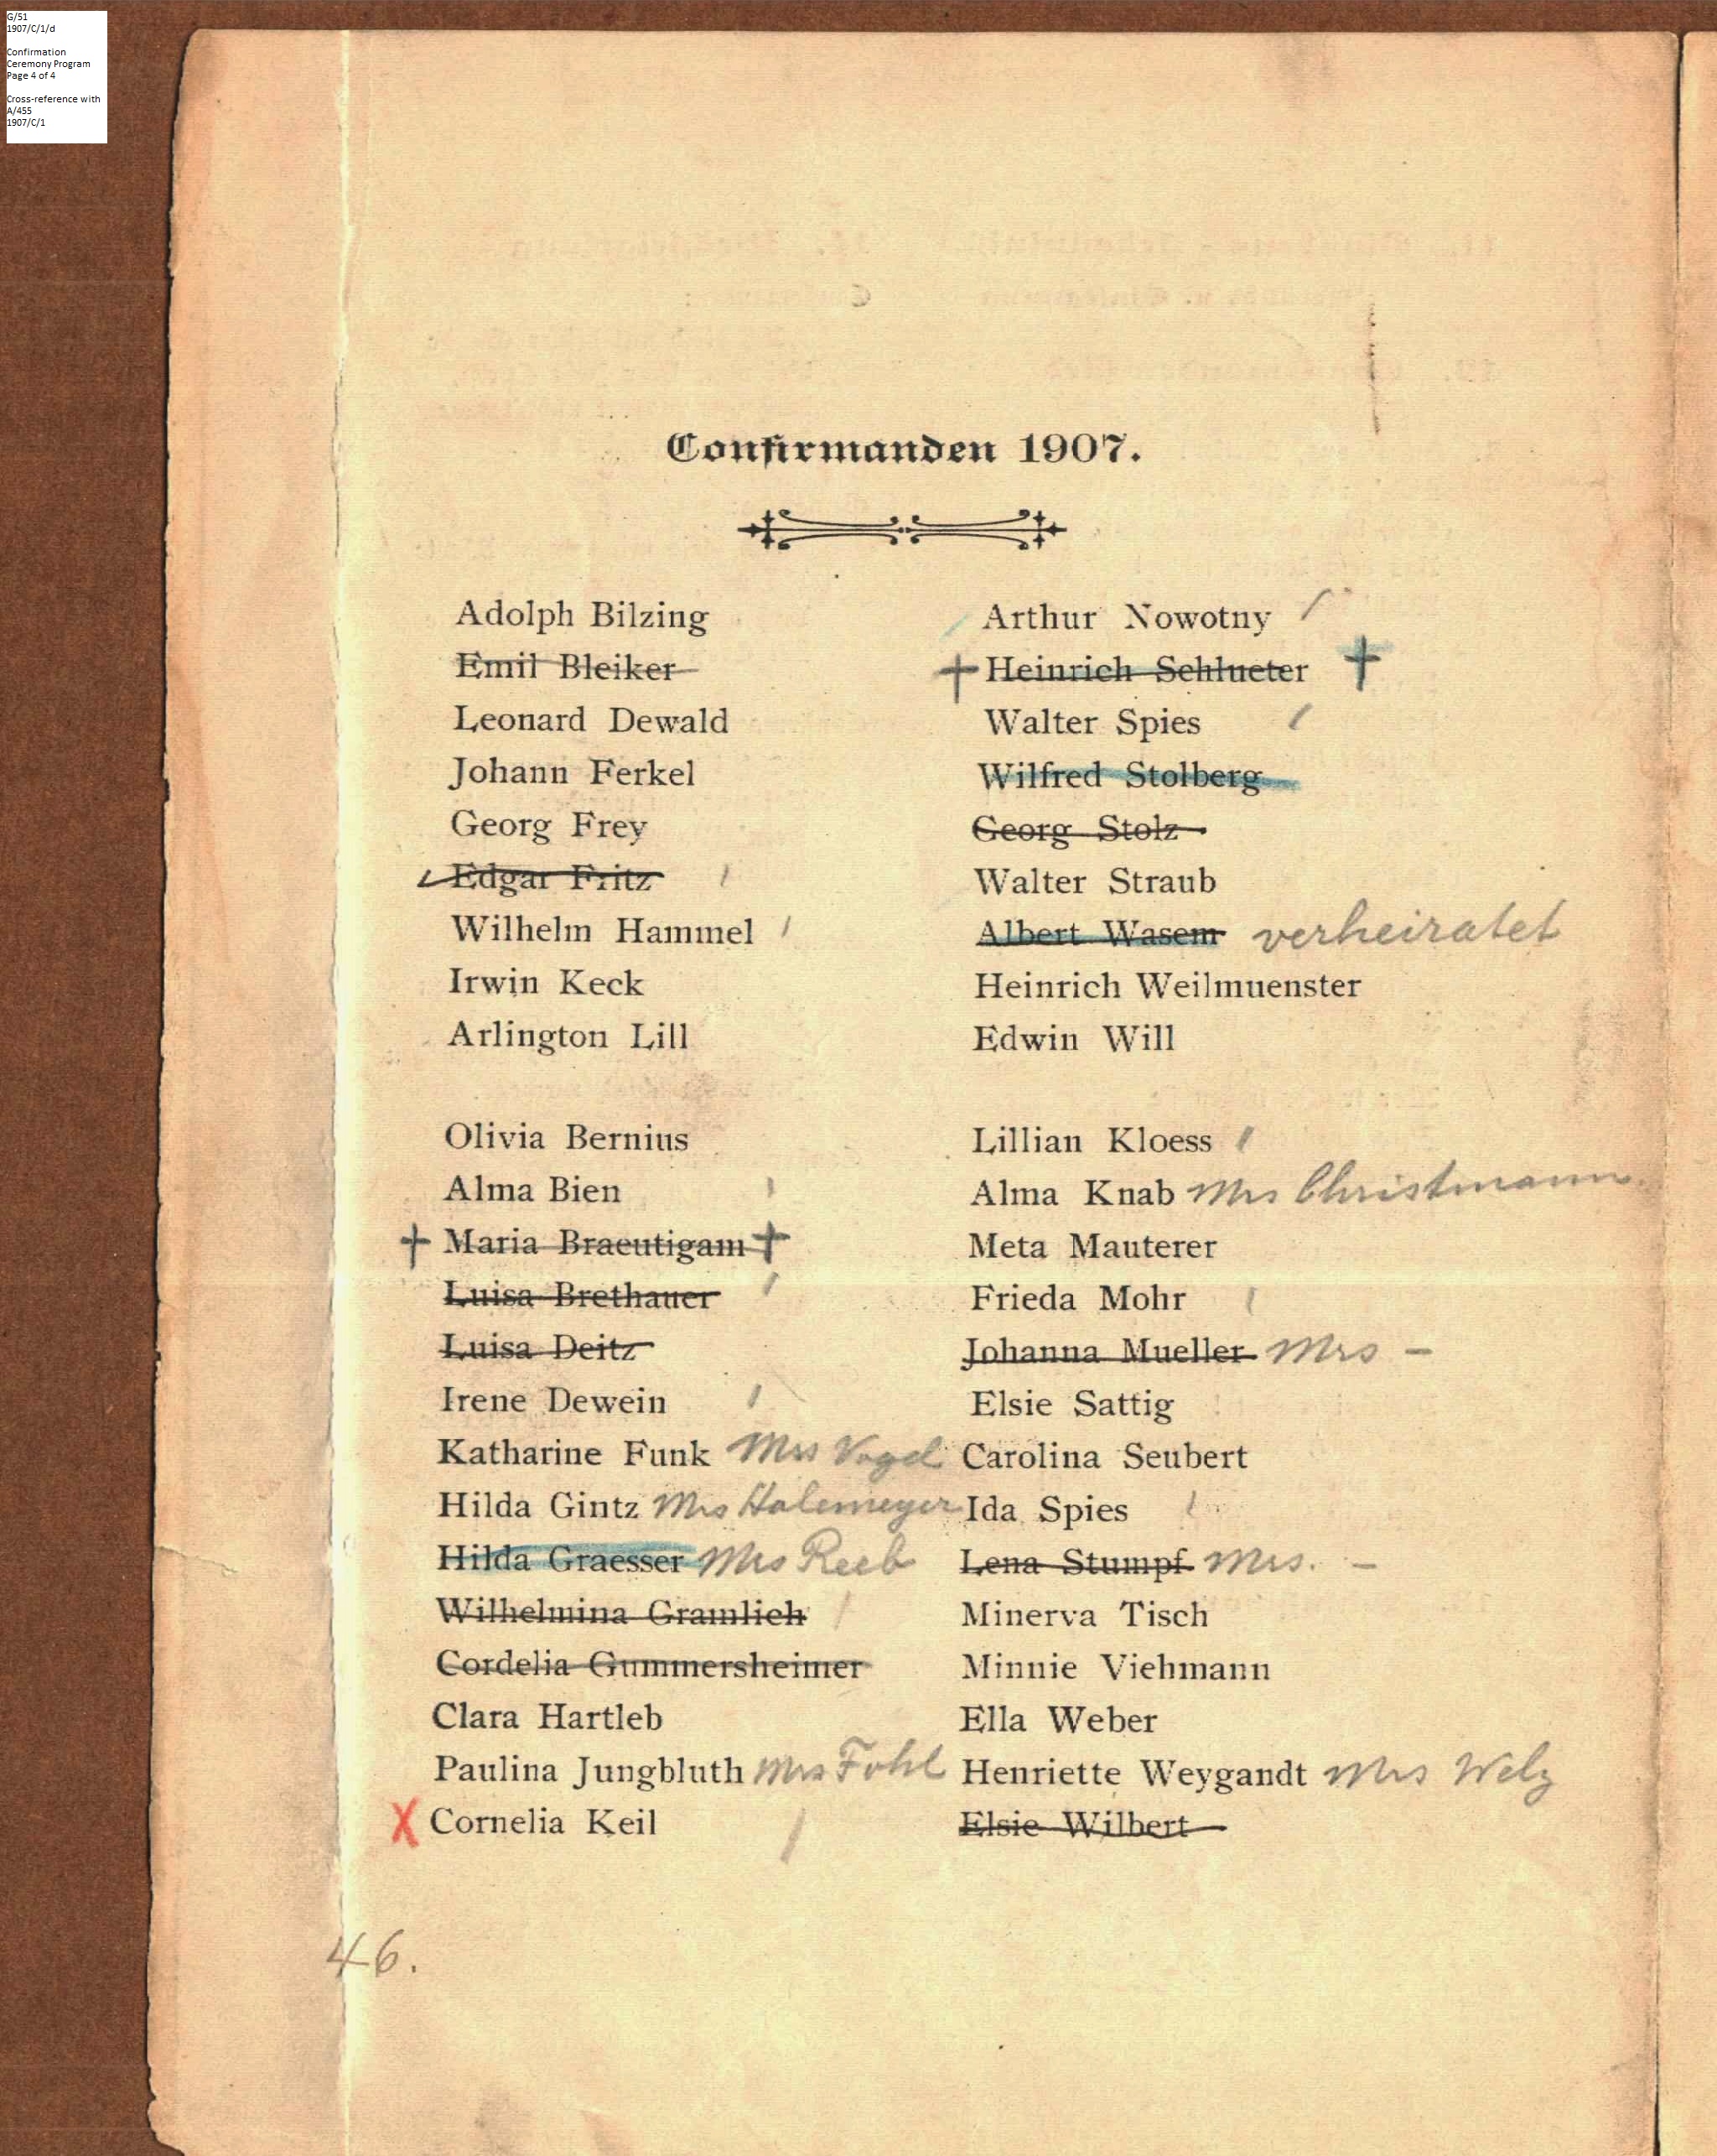 G/51
1907/C/1/d
Confirmation
Ceremony Program
Page 4 of 4
Cross-reference with
A/455
1907/C/1
Confirmanden 1907.
Adolph Bilzing
Emil Bleiker
Leonard Dewald
Johann Ferkel
Georg Frey
Edgar Fritz
Wilhelm Hammel
Irwin Keck
Arlington Lill
Arthur Nowotny
Heinrich Schlueter
Walter Spies
Wilfred Stolberg
Georg Stolz
Walter Straub
Albert Wasem verheiratet
Heinrich Weilmuenster
Edwin Will
Olivia Bernius
Alma Bien
Maria Braeutigam
Luisa Brethauer
Luisa Deitz
Irene Dewein
Katharine Funk Mrs Vogel
Hilda Gintz Mrs Halemeyer
Hilda Graesser Mrs Reeb
Wilhelmina Gramlich
Cordelia Gummersheimer
Clara Hartleb
Paulina Jungbluth Mrs Fohl
X Cornelia Keil
Lillian Kloess
Alma Knab Mrs Christmann
Meta Mauterer
Frieda Mohr
Johanna Mueller Mrs –
Elsie Sattig
Carolina Seubert
Ida Spies
Lena Stumpf Mrs. –
Minerva Tisch
Minnie Viehmann
Ella Weber
Henriette Weygandt Mrs Welz
Elsie Wilbert
46.